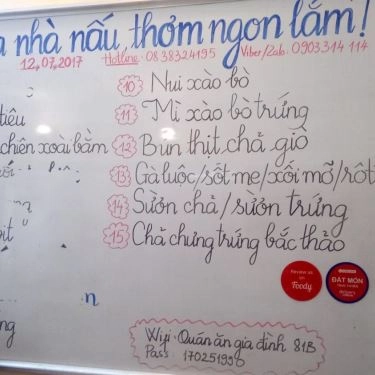 nhà nấu, thơm ngon lắm!
12,07,2017 Hotline: 0838324195 Viber/Zalo: 0903314114
10 Nui xào bò
tiêu 11 Mì xào bò trứng
chiên xoài bằm 12 Bún thịt, chả giò
13 Gà luộc/sốt me/xối mỡ/rôti
14 Sườn chả/sườn trứng
15 Chả chưng trứng bắc thảo
Review us on Foody
ĐẶT MÓN
Wifi: Quán ăn gia đình 81B
Pass: 170251990